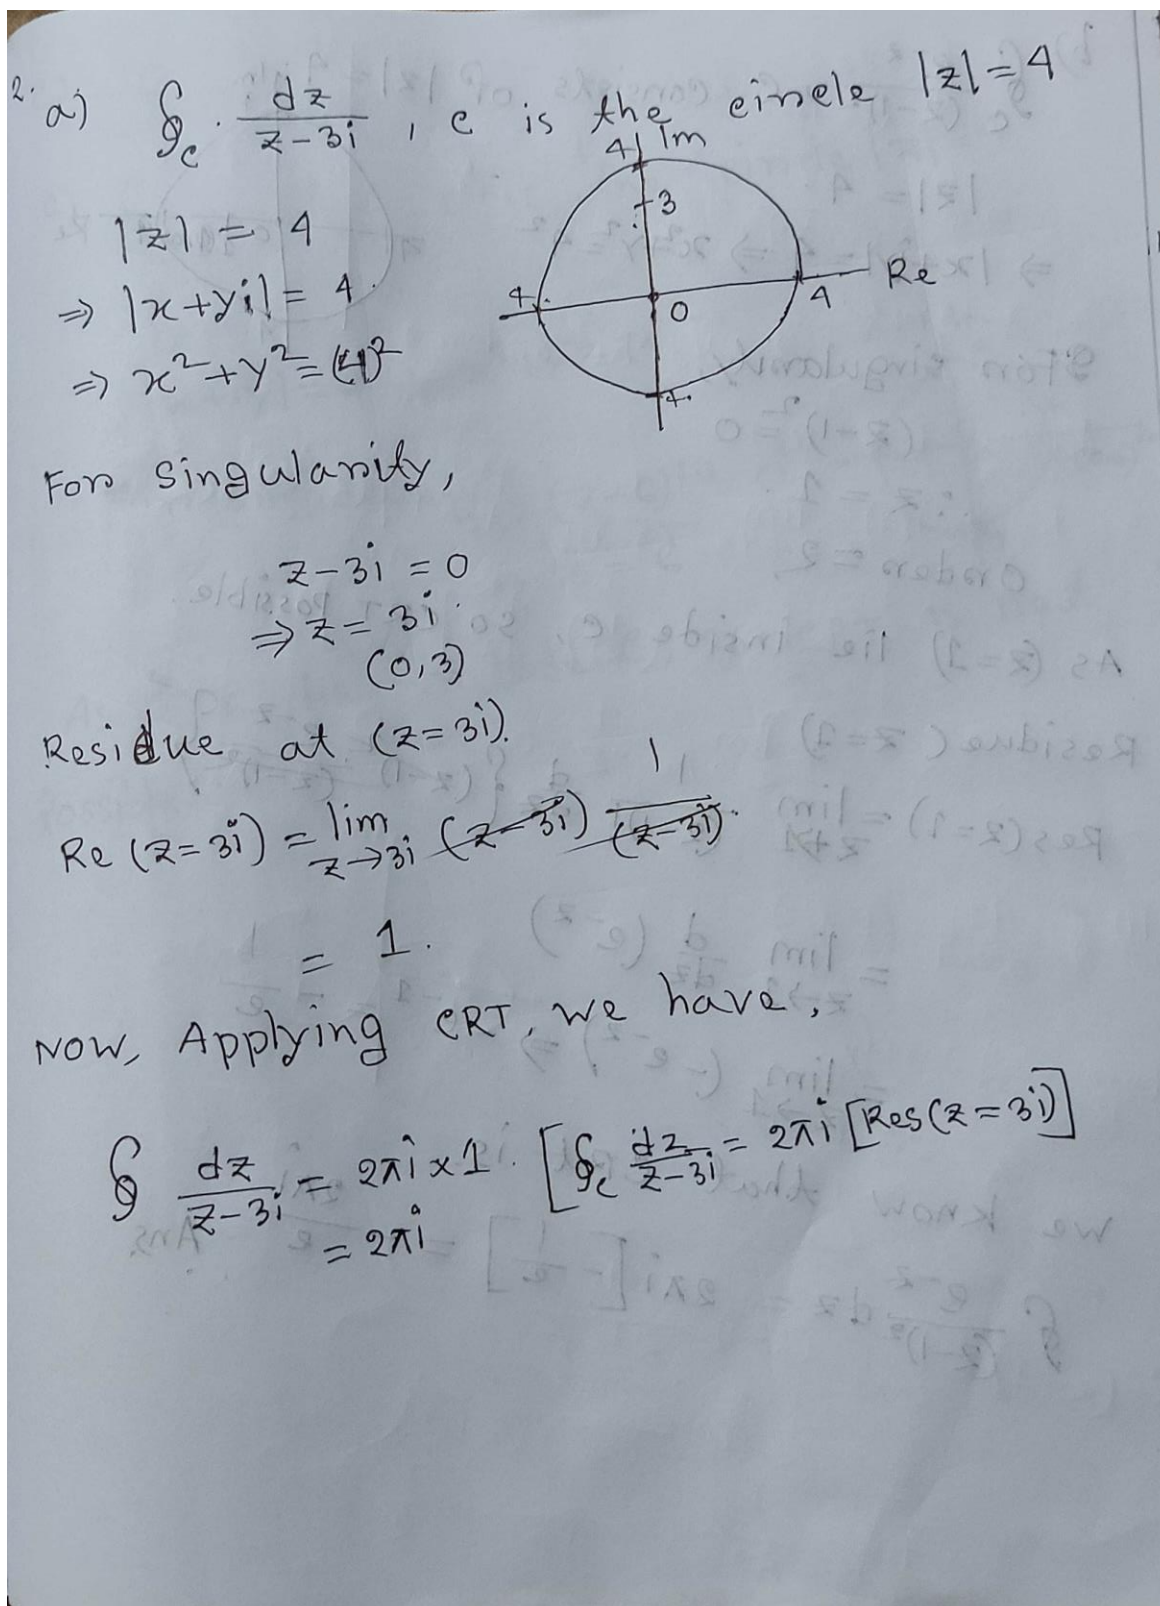 2. a) ∮c dz/(z-3i), c is the circle |z|=4
Im
4
3
Re
4 0 4
4
|z| = 4
⇒ |x+yi| = 4
⇒ x²+y² = (4)²
For Singularity,
z-3i = 0
⇒ z = 3i
(0,3)
Residue at (z=3i).
Re (z=3i) = lim z→3i (z-3i) 1/(z-3i)
= 1.
Now, Applying CRT, we have,
∮ dz/(z-3i) = 2πi×1. [∮c dz/(z-3i) = 2πi [Res(z=3i)]
= 2πi